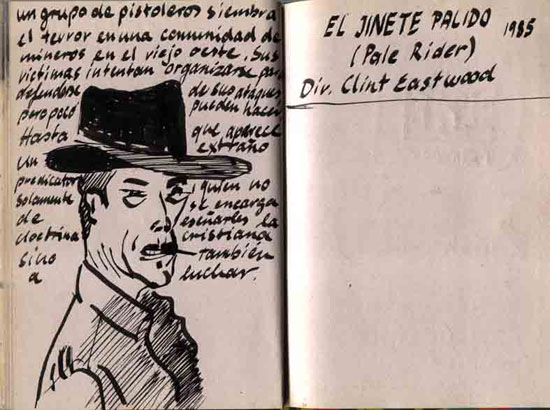 un grupo de pistoleros siembra
el terror en una comunidad de
mineros en el viejo oeste. Sus
victimas intentan organizarse para
defenderse de sus ataques
pero poco pueden hacer
Hasta que aparece
un extraño
predicator quien no
solamente se encarga
de eseñarles la
doctrina cristiana
sino también
a luchar.
EL JINETE PALIDO 1985
(Pale Rider)
Dir. Clint Eastwood